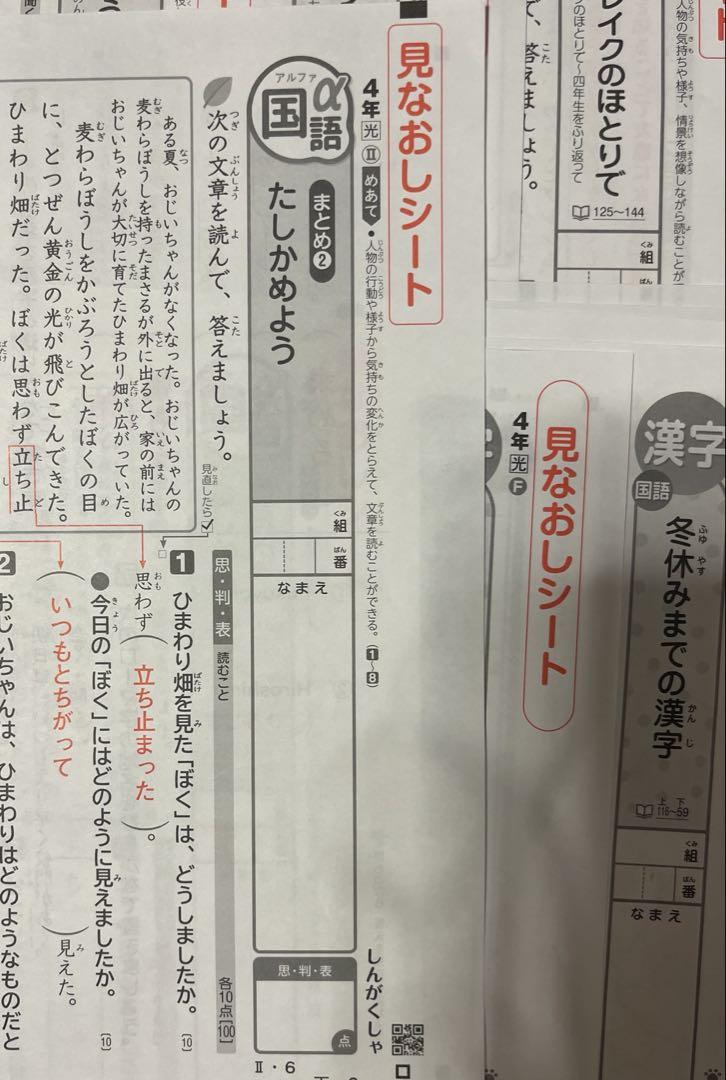 見なおしシート
4年 光 Ⅱ めあて ・人物の行動や様子から気持ちの変化をとらえて、文章を読むことができる。(1~8)
しんがくしゃ
アルファ
国語α
まとめ2
たしかめよう
組
番
なまえ
思・判・表
点
Ⅱ・6
次の文章を読んで、答えましょう。
見直したら
思・判・表 読むこと
各10点[100]
ある夏、おじいちゃんがなくなった。おじいちゃんの
麦わらぼうしを持ったまさるが外に出ると、家の前には
おじいちゃんが大切に育てたひまわり畑が広がっていた。
麦わらぼうしをかぶろうとしたぼくの目
に、とつぜん黄金の光が飛びこんできた。
ひまわり畑だった。ぼくは思わず立ち止
1 ひまわり畑を見た「ぼく」は、どうしましたか。[10]
思わず(立ち止まった)。
●今日の「ぼく」にはどのように見えましたか。[10]
(いつもとちがって)見えた。
2 おじいちゃんは、ひまわりはどのようなものだと
人物の気持ちや様子、情景を想像しながら読むことが
レイクのほとりで
125~144
組
のほとりで~四年生をふり返って
て、答えましょう。
漢字
国語
冬休みまでの漢字
上 下
116~59
組
番
なまえ
見なおしシート
4年 光 F